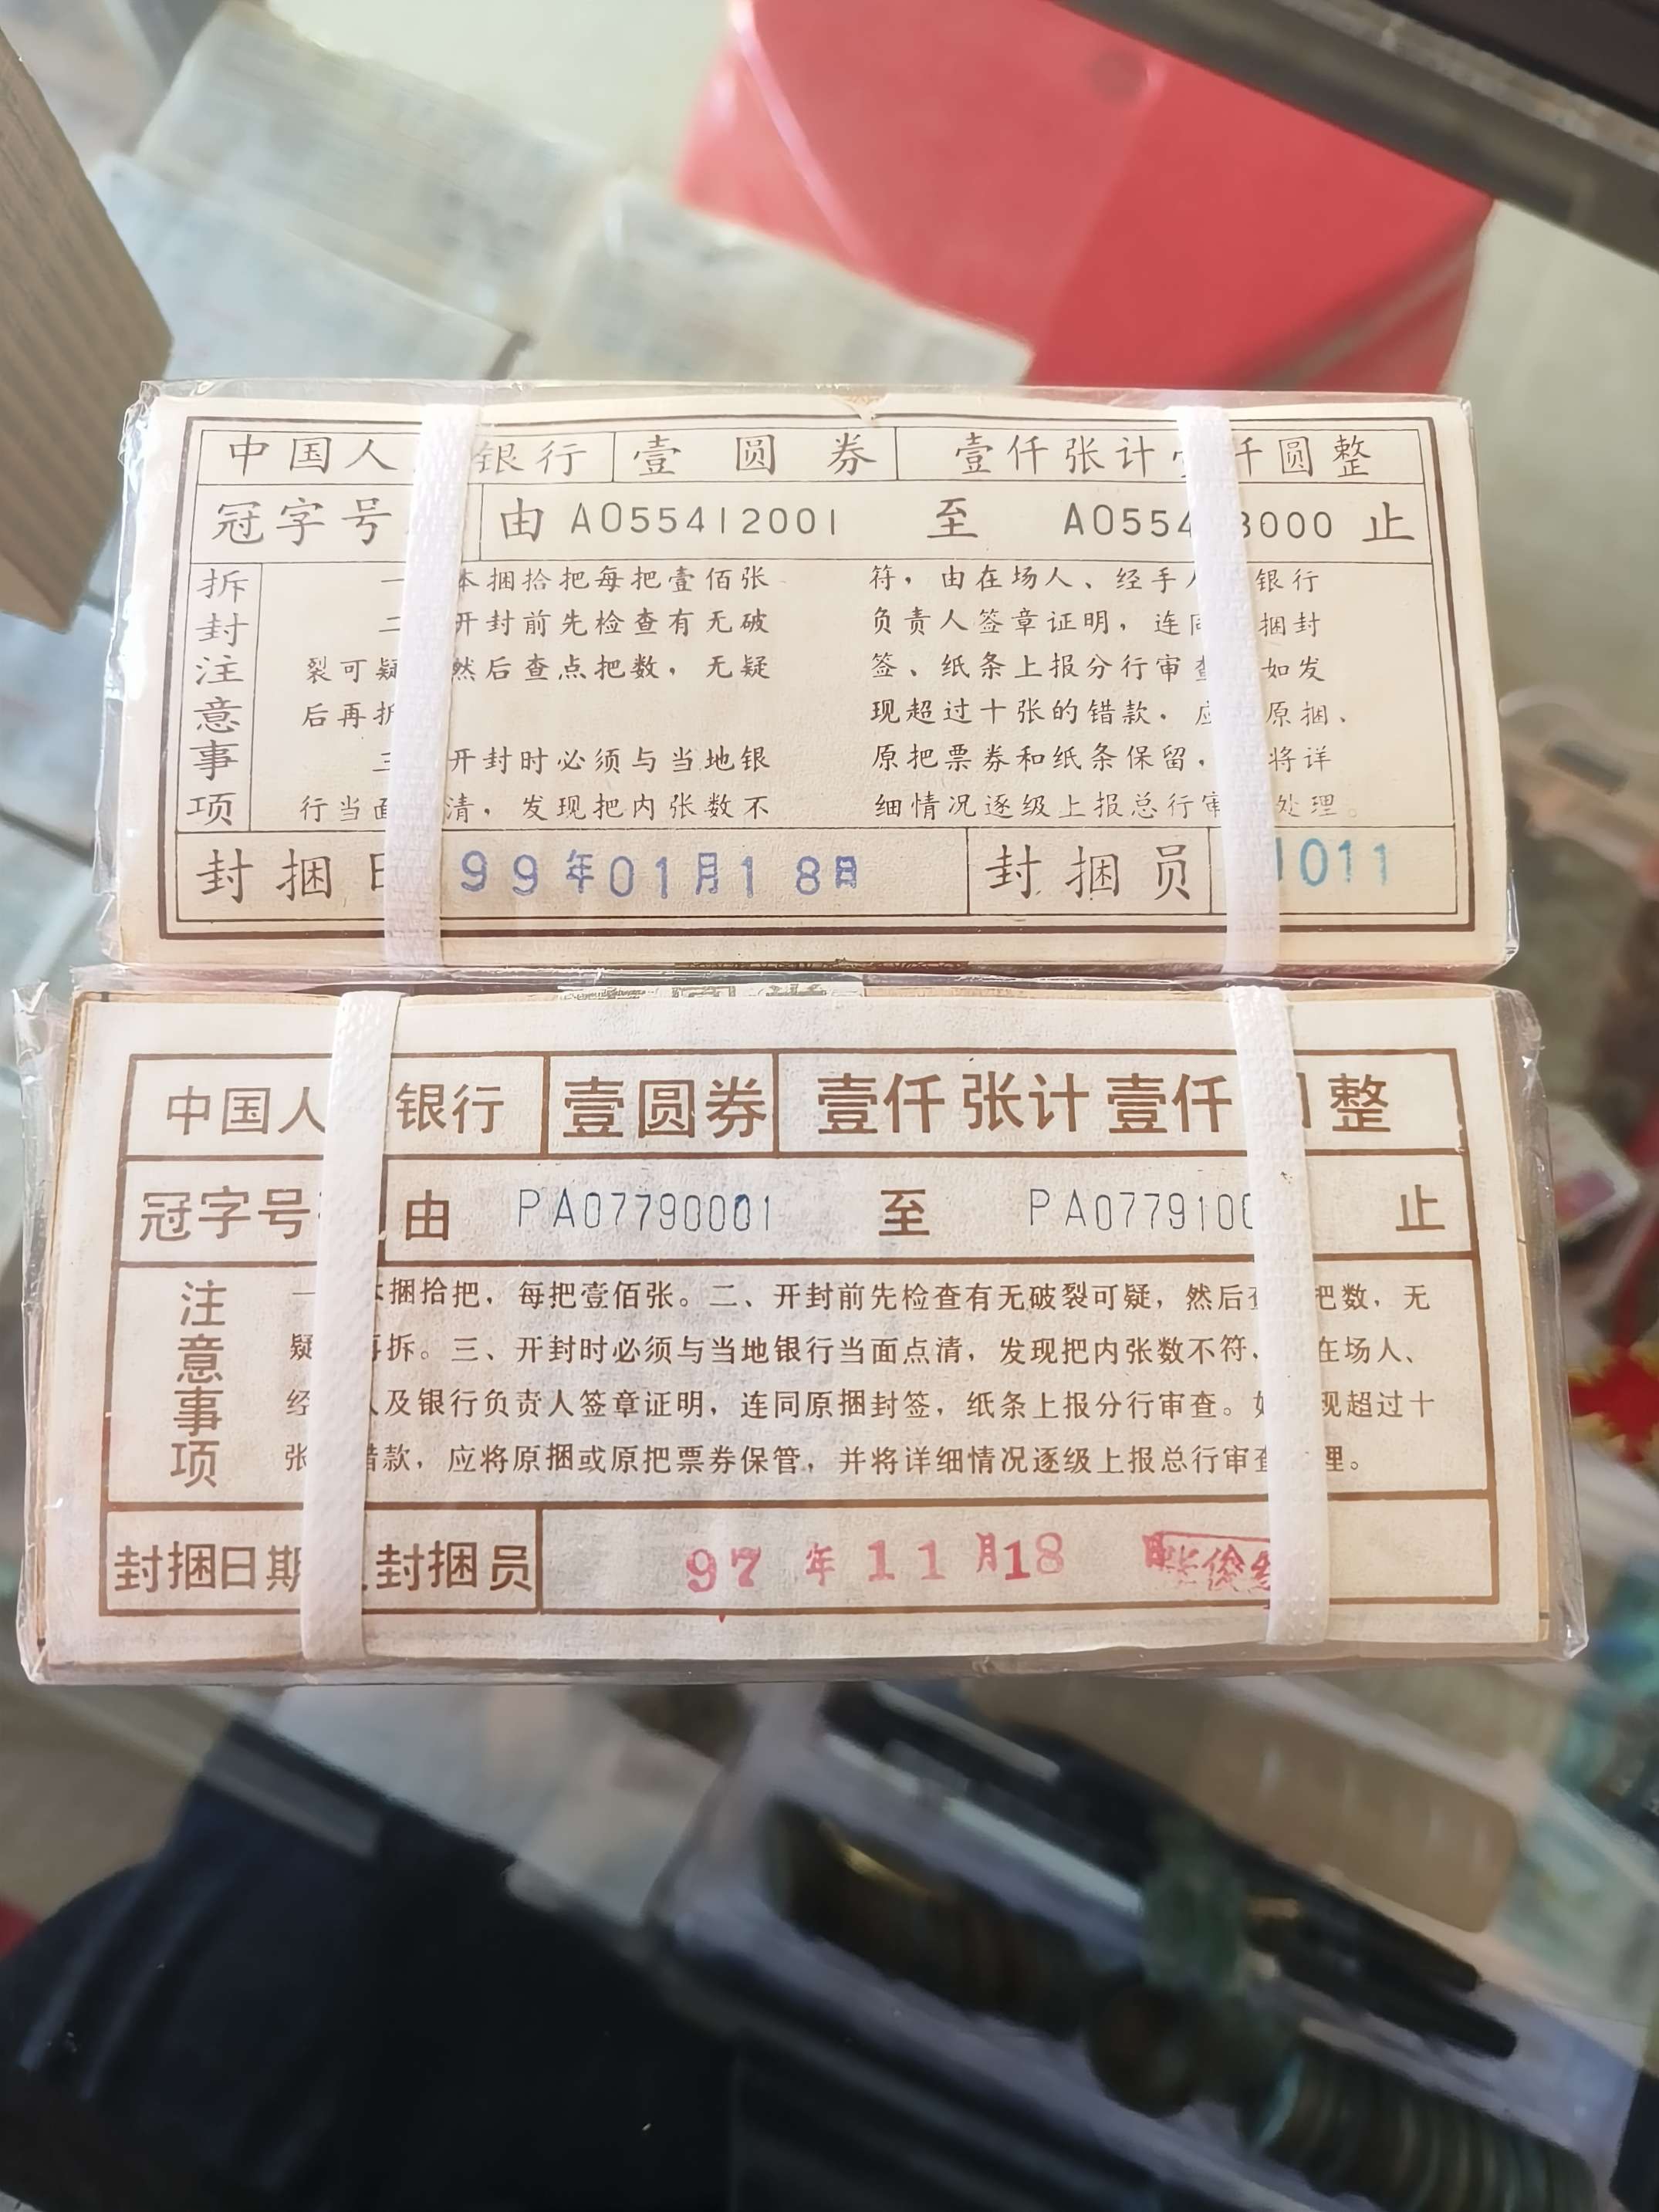 中国人 银行 壹圆券 壹仟张计 仟圆整
冠字号 由 A055412001 至 A0554 3000 止
拆封注意事项
一 本捆拾把每把壹佰张
二 开封前先检查有无破
裂可疑 然后查点把数，无疑
后再拆
三 开封时必须与当地银
行当面 清，发现把内张数不
符，由在场人、经手人 银行
负责人签章证明，连同 捆封
签、纸条上报分行审查 如发
现超过十张的错款．应 原捆、
原把票券和纸条保留， 将详
细情况逐级上报总行审 处理。
封捆日 99年01月18日 封捆员 1011
中国人 银行 壹圆券 壹仟张计壹仟 整
冠字号 由 PA07790001 至 PA0779100 止
注意事项
一 本捆拾把，每把壹佰张。二、开封前先检查有无破裂可疑，然后查 把数，无
疑 再拆。三、开封时必须与当地银行当面点清，发现把内张数不符， 在场人、
经 人及银行负责人签章证明，连同原捆封签，纸条上报分行审查。如 现超过十
张 错款，应将原捆或原把票券保管，并将详细情况逐级上报总行审查 理。
封捆日期 封捆员 97年11月18日